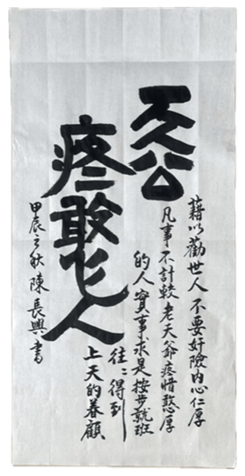 天公
疼憨人
藉以勸世人不要奸險內心仁厚
凡事不計較老天爺疼惜憨厚
的人實事求是按步就班
往〻得到
上天的眷顧
甲辰之秋陳長興書